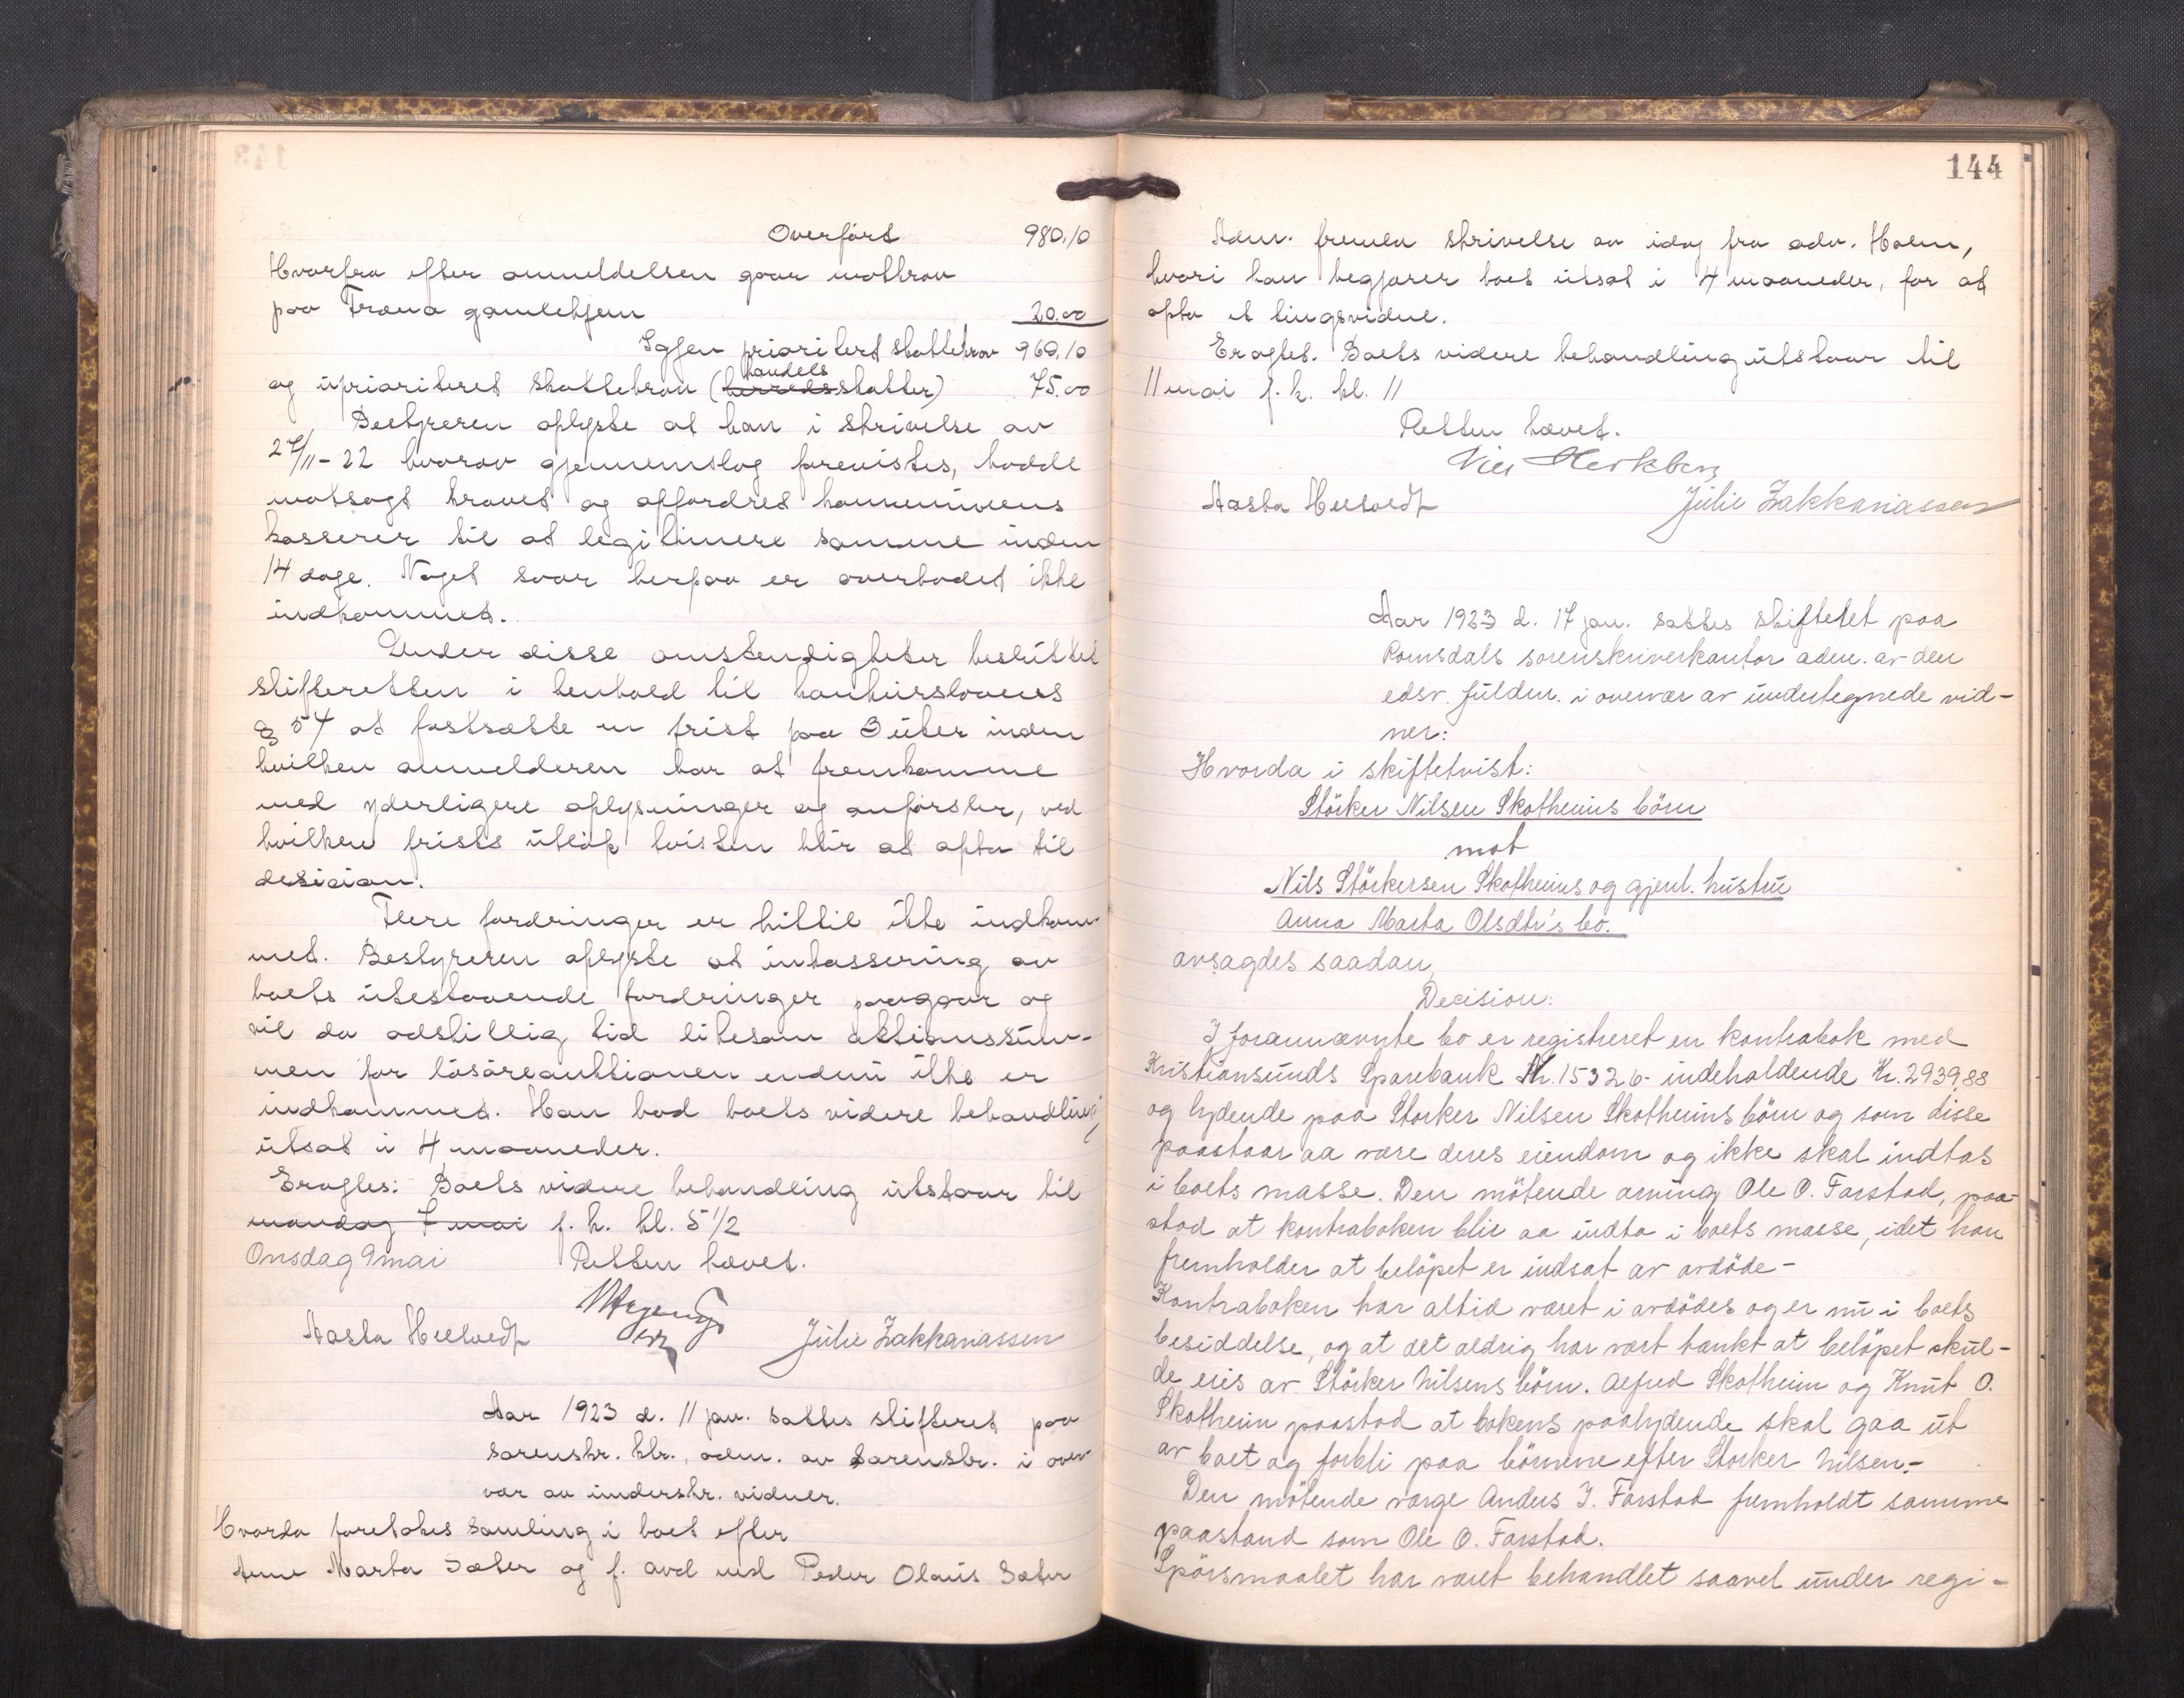 Overført 980.10
Hvorfra efter anmeldelsen gaar motkrav
paa Fræna gamlehjem 20.00
Igjen prioritert skattekrav 960.10
og uprioriteret skattekrav (herredsskatter) 75.00
handels
Bestyreren oplyste at han i skrivelse av
27/11-22 hvorav gjennemslag forevistes, hadde
motsagt kravet og opfordret kommunens
kasserer til at legitimere samme inden
14 dage. Noget svar herpaa er overhodet ikke
indkommet.
Under disse omstendigheter besluttet
skifteretten i henhold til konkurslovens
§ 54 at fastsætte en frist paa 3 uker inden
hvilken anmelderen har at fremkomme
med yderligere oplysninger og anførsler, ved
hvilken frists utløp tvisten blir at opta til
desision.
Flere fordringer er hittil ikke indkom-
met. Bestyreren oplyste at inkassering av
boets utestaaende fordringer paagaar og
vil da adskillig tid likesom aktionssum-
men for løsøreauktionen endnu ikke er
indkommet. Han bad boets videre behandling
utsat i 4 maaneder.
Eragtes: Boets videre behandling utstaar til
mandag 7 mai f. k. kl. 5 1/2
Onsdag 9 mai Retten hævet.
Aasta Heltvedt Julie Zakkariassen
Aar 1923 d. 11 jan. sattes skifteret paa
sorenskr. ktr., adm. av sorenskr. i over-
vær av underskr. vidner.
Hvorda foretokes samling i boet efter
Anne Marta Sæter og f. avd md Peder Olaus Sæter
144
Adm. fremla skrivelse av idag fra adv. Holm,
hvori han begjærer boet utsat i 4 maaneder, for at
opta et tingsvidne.
Eragtet. Boets videre behandling utstaar til
11 mai f. k. kl. 11
Retten hævet.
Aasta Heltvedt Julie Zakkariassen
Aar 1923 d. 17 jan. sattes skifteret paa
Romsdals sorenskriverkontor adm. av den
edsv. fuldm. i overvær av undertegnede vid-
ner:
Hvorda i skiftetvist:
Störker Nilsen Skotheims börn
mot
Nils Störkersen Skotheims og gjenl. hustru
Anna Marta Olsdtr's bo.
avsagdes saadan
Decision:
I forannævnte bo er registreret en kontrabok med
Kristiansunds Sparebank Nr. 15326 - indeholdende Kr. 2939,88
og lydende paa Storker Nilsen Skotheims börn og som disse
paastaar aa være deres eiendom og ikke skal indtas
i boets masse. Den mötende arving Ole O. Farstad, paa-
stod at kontraboken blir aa indta i boets masse, idet han
fremholder at belöpet er indsat av avdöde -
Kontraboken har altid været i avdödes og er nu i boets
besiddelse, og at det aldrig har vært tænkt at belöpet skul-
de eies av Störker Nilsens börn. Alfred Skotheim og Knut O.
Skotheim paastod at bokens paalydende skal gaa ut
av boet og forbli paa börnene efter Storker Nilsen.-
Den mötende værge Anders I. Farstad fremholdt samme
paastand som Ole O. Farstad.
Spörsmaalet har været behandlet saavel under regi-